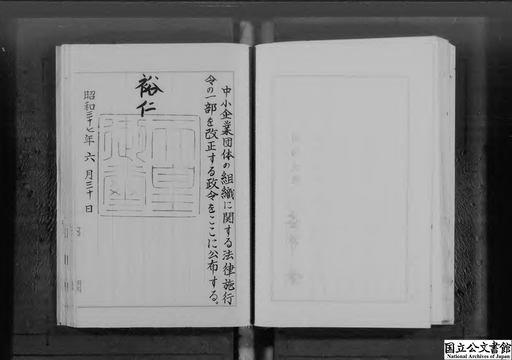 中小企業団体の組織に関する法律施行
令の一部を改正する政令をここに公布する。
裕仁
天皇
御璽
昭和三十七年六月三十日
国立公文書館
National Archives of Japan